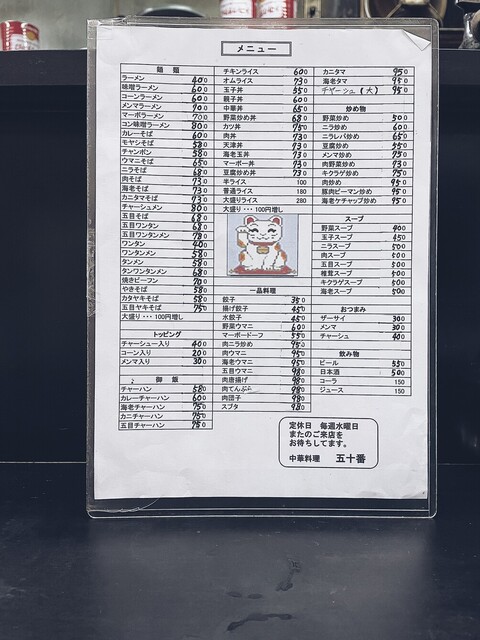 メニュー
麺 類
ラーメン 400
味噌ラーメン 600
コーンラーメン 600
メンマラーメン 700
マーボラーメン 700
コン味噌ラーメン 800
カレーそば 600
モヤシそば 580
チャンポン 580
ウマニそば 650
ニラそば 680
肉そば 730
海老そば 730
カニタマそば 730
チャーシュメン 800
五目そば 680
五目ワンタン 680
五目ワンタンメン 780
ワンタン 400
ワンタンメン 580
タンメン 580
タンワンタンメン 680
焼きビーフン 700
やきそば 580
カタヤキそば 580
五目ヤキそば 750
大盛り・・・100円増し
トッピング
チャーシュー入り 400
コーン入り 200
メンマ入り 300
御 飯
チャーハン 580
カレーチャーハン 600
海老チャーハン 750
カニチャーハン 750
五目チャーハン 750
チキンライス 600
オムライス 730
玉子丼 550
親子丼 600
中華丼 650
野菜炒め丼 680
カツ丼 750
肉丼 730
天津丼 730
海老玉丼 730
マーボー丼 730
豆腐炒め丼 730
半ライス 100
普通ライス 180
大盛りライス 280
大盛り・・・100円増し
一品料理
餃子 350
揚げ餃子 450
水餃子 450
野菜ウマニ 600
マーボードーフ 550
肉ニラ炒め 950
肉ウマニ 950
海老ウマニ 950
五目ウマニ 980
肉唐揚げ 980
肉てんぷら 980
肉団子 980
スブタ 980
カニタマ 950
海老タマ 950
チヤーシュ(大) 950
炒め物
野菜炒め 500
ニラ炒め 600
ニラレバ炒め 650
豆腐炒め 550
メンマ炒め 750
肉野菜炒め 730
キクラゲ炒め 750
肉炒め 950
豚肉ピーマン炒め 950
海老ケチャップ炒め 950
スープ
野菜スープ 400
玉子スープ 450
ニラスープ 500
肉スープ 500
五目スープ 500
椎茸スープ 600
キクラゲスープ 500
海老スープ 500
おつまみ
ザーサイ 300
メンマ 300
チャーシュ 400
飲み物
ビール 550
日本酒 500
コーラ 150
ジュース 150
定休日 毎週水曜日
またのご来店を
お待ちしてます。
中華料理 五十番